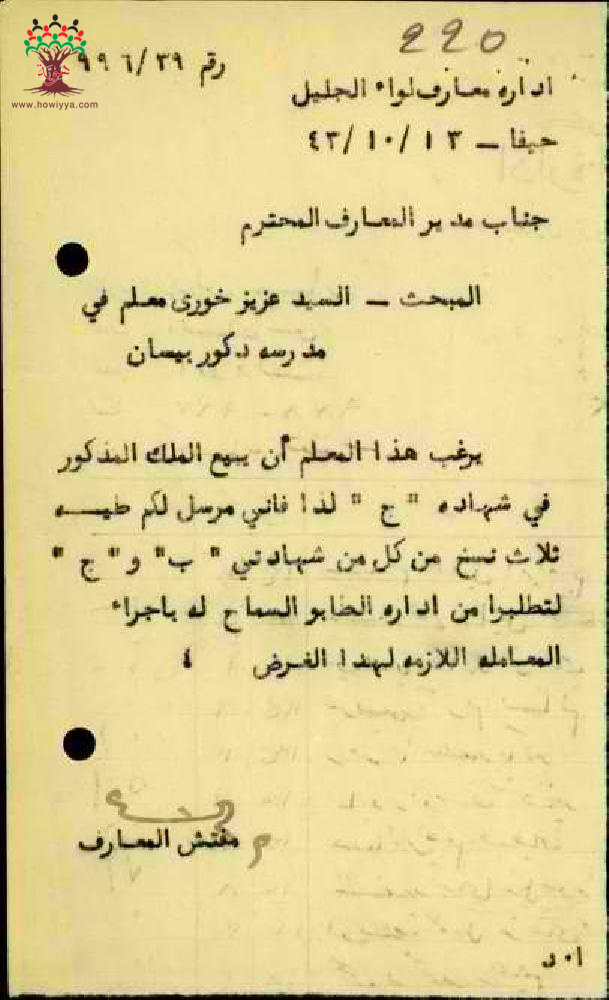 220
رقم ٩٩٦/٣٩
www.howiyya.com
اداره معارف لواء الجليل
حيفا – ٤٣/١٠/١٣
جناب مدير المعارف المحترم
المبحث – السيد عزيز خورى معلم في
مدرسه ذكور بيسان
يرغب هذا المعلم أن يبيع الملك المذكور
في شهاده " ج " لذا فاني مرسل لكم طيــه
ثلاث نسخ من كل من شهادتي " ب" و" ج "
لتطلبوا من اداره الطابو السماح له باجراء
المعامله اللازمه لهذا الغرض ٤
مفتش المعارف
ا٠د